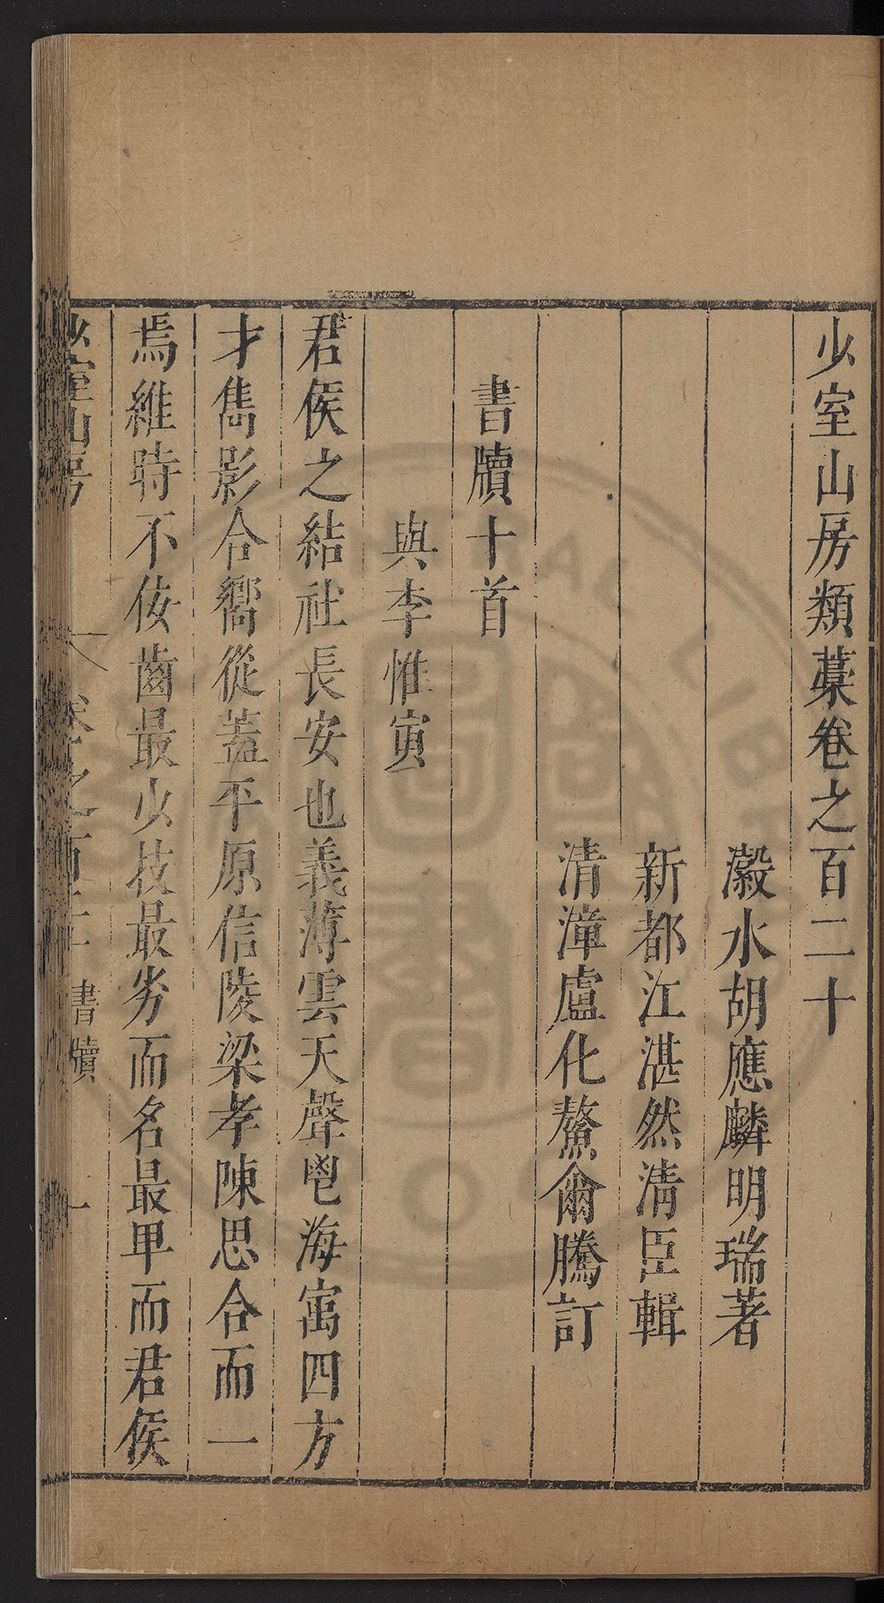 少室山房類藁卷之百二十
瀫水胡應麟明瑞著
新都江湛然清臣輯
清漳盧化鰲爾騰訂
書牘十首
與李惟寅
君侯之結社長安也義薄雲天聲鬯海寓四方
才雋影合嚮從蓋平原信陵梁孝陳思合而一
焉維時不佞齒最少技最劣而名最卑而君侯
少室山房
卷之百二十
書牘
一